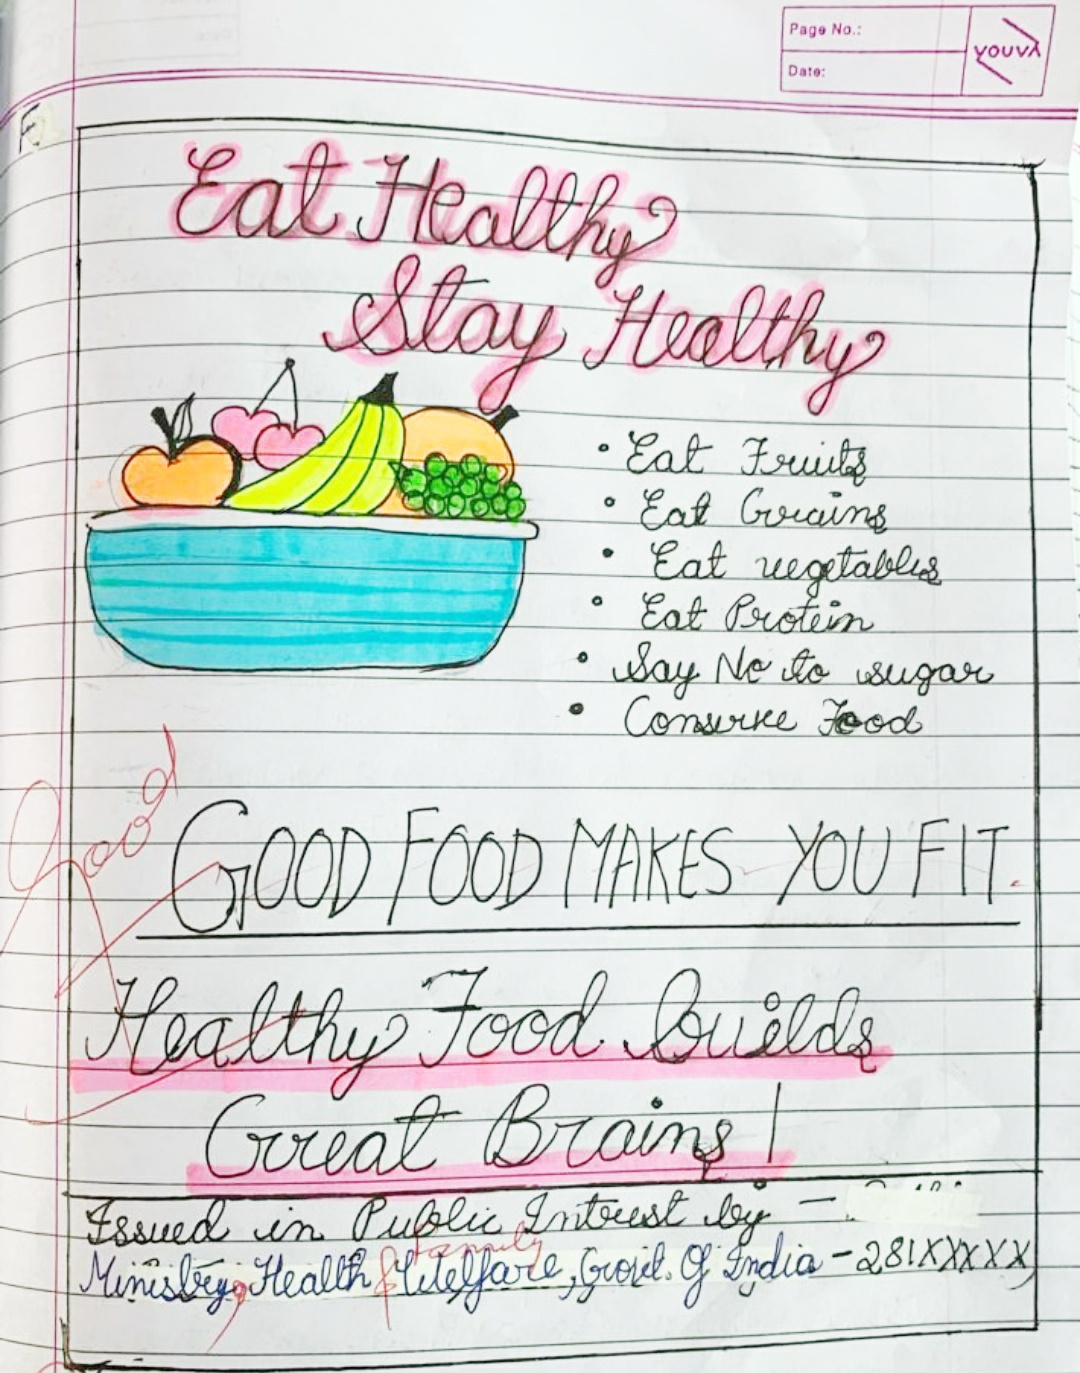 Page No.:
Date:
YOUVA
Eat Healthy
Stay Healthy
• Eat Fruits
• Eat Grains
• Eat vegetables
• Eat Protein
• Say No to sugar
• Conserve Food
Good
GOOD FOOD MAKES YOU FIT.
Healthy Food builds
Great Brains!
Issued in Public Interest by –
family
Ministry, Health & Welfare, Govt. Of India – 281XXXXX